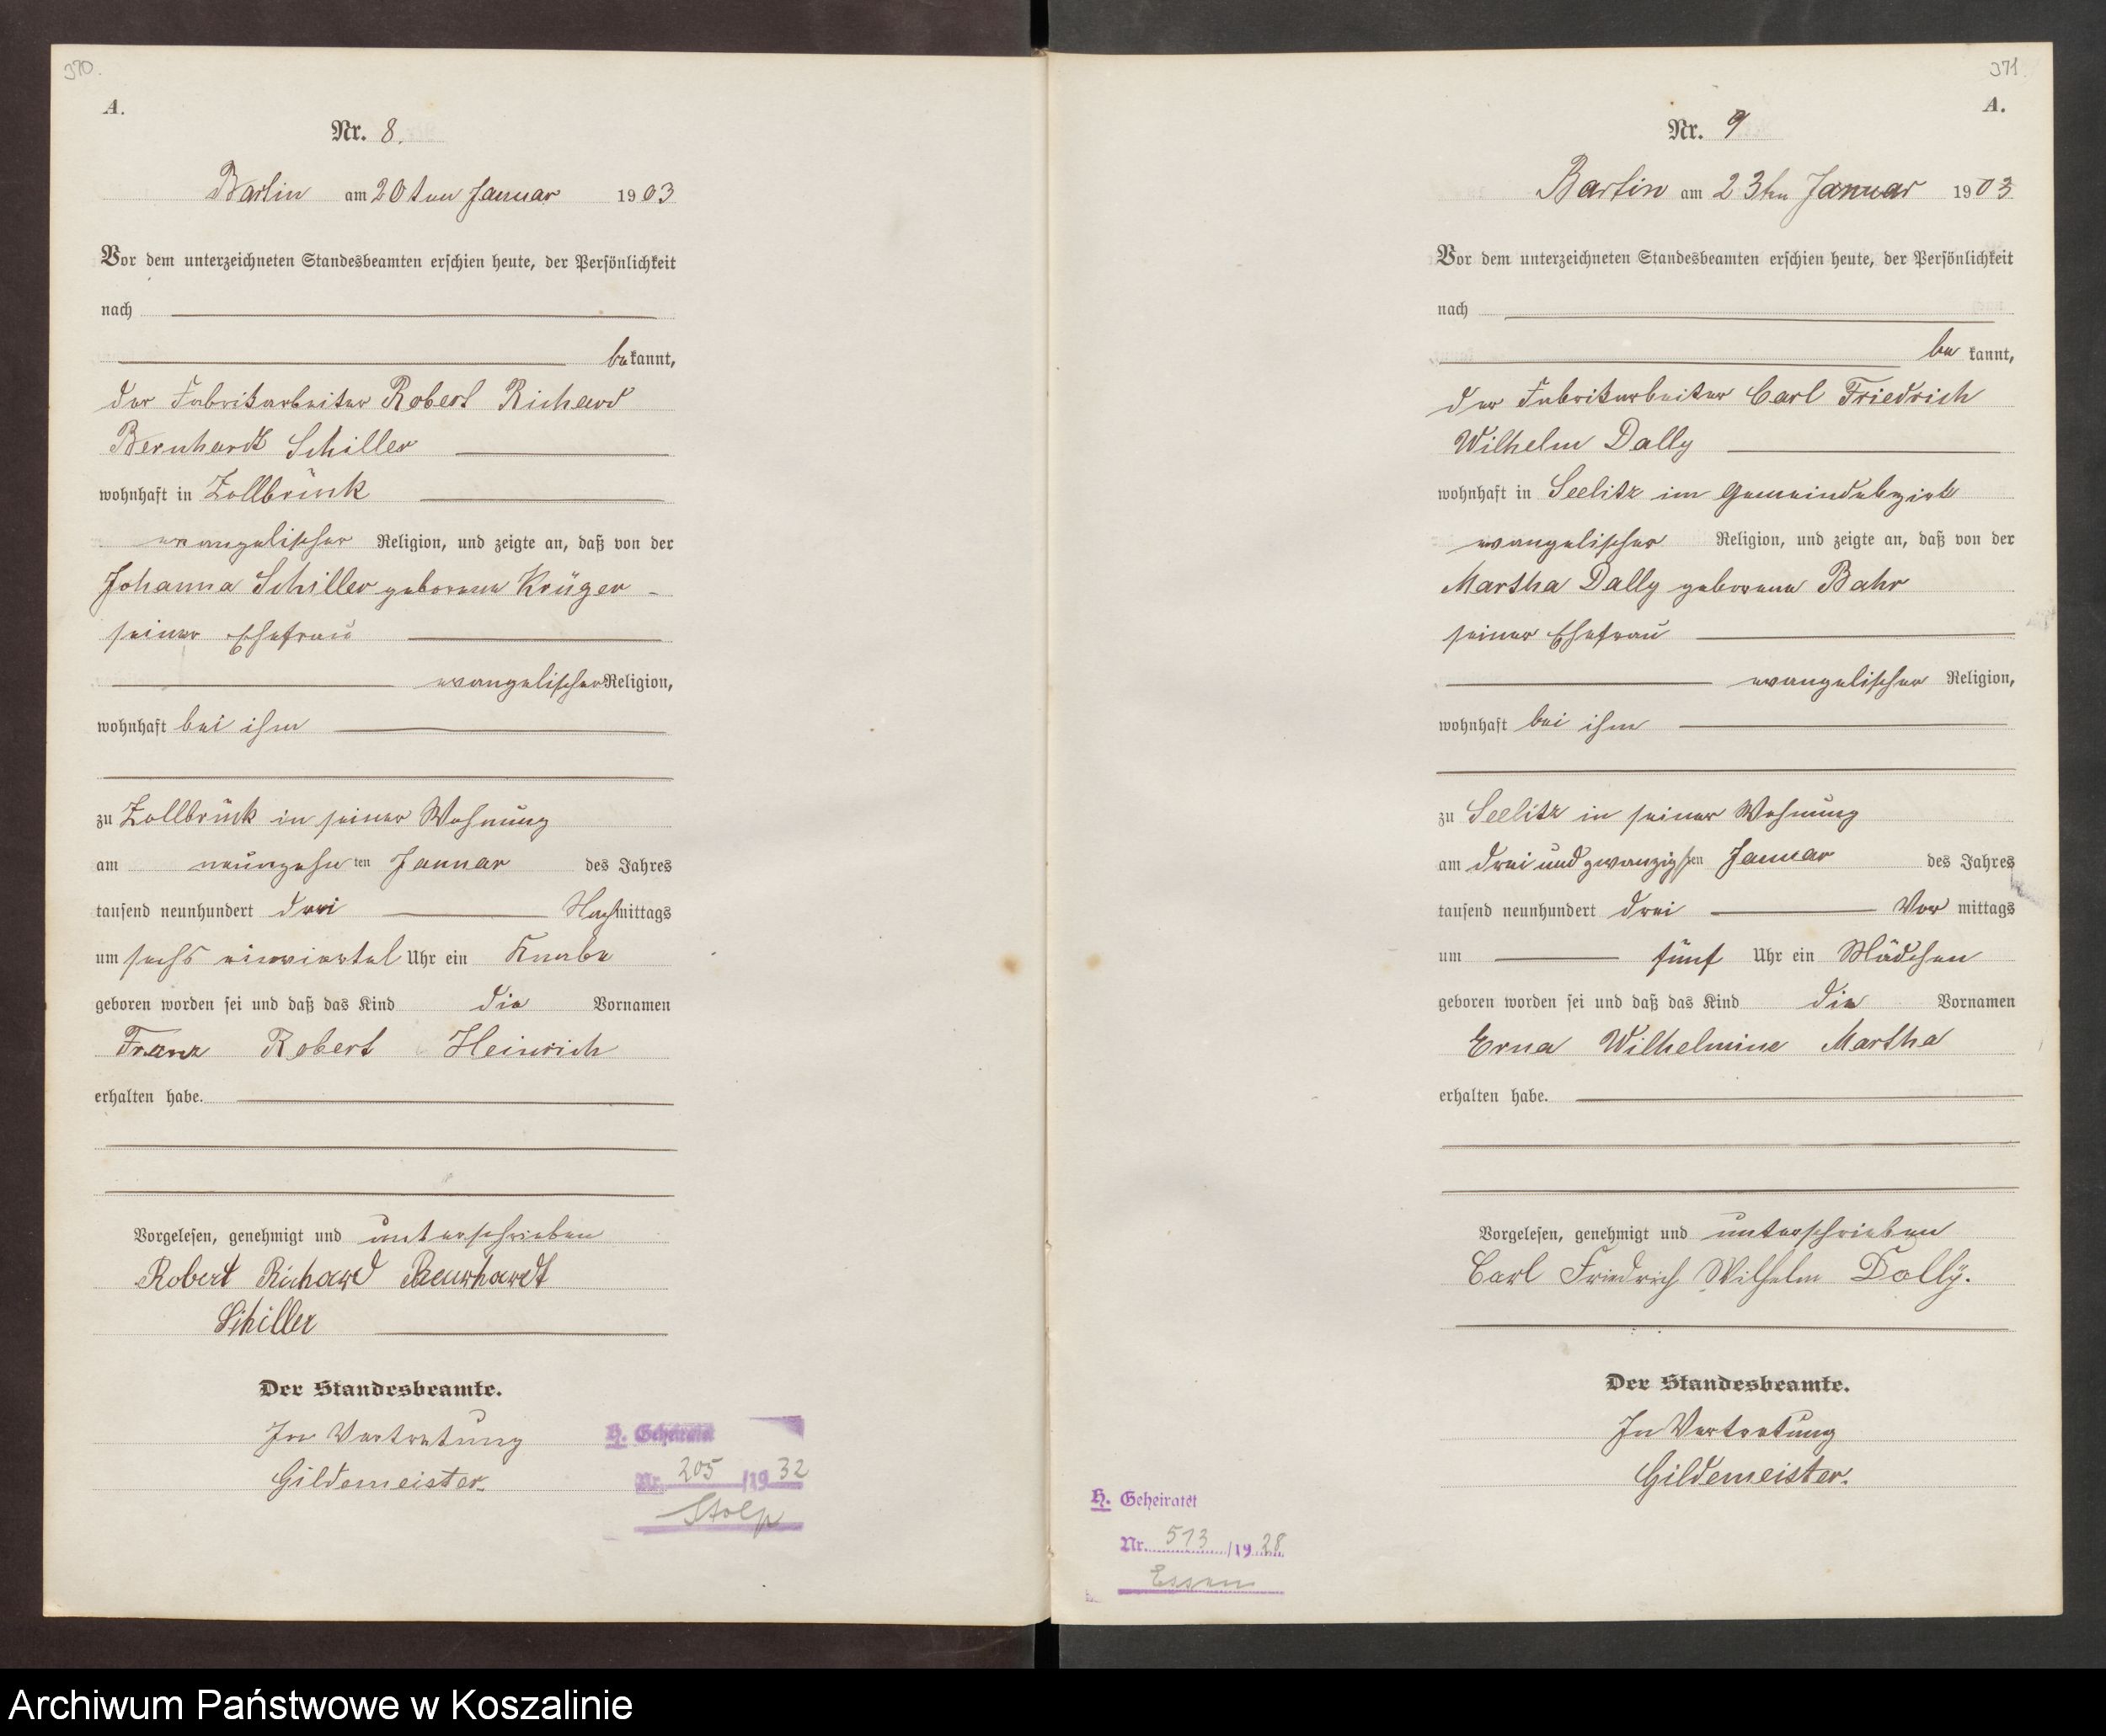 370.
A.
Nr. 8.
Bartin am 20ten Januar 1903
Vor dem unterzeichneten Standesbeamten erschien heute, der Persönlichkeit
nach
bekannt,
der Fabrikarbeiter Robert Richard
Bernhardt Schiller
wohnhaft in Zollbrück
evangelischer Religion, und zeigte an, daß von der
Johanna Schiller geborene Krüger
seiner Ehefrau
evangelischer Religion,
wohnhaft bei ihm
zu Zollbrück in seiner Wohnung
am neunzehnten Januar des Jahres
tausend neunhundert drei Nachmittags
um sechs einviertel Uhr ein Knabe
geboren worden sei und daß das Kind die Vornamen
Franz Robert Heinrich
erhalten habe.
Vorgelesen, genehmigt und unterschrieben
Robert Richard Bernhardt
Schiller
Der Standesbeamte.
In Vertretung
Gildemeister.
H. Geheiratet
Nr. 205/1932
Stolp
371
A.
Nr. 9
Bartin am 23ten Januar 1903
Vor dem unterzeichneten Standesbeamten erschien heute, der Persönlichkeit
nach
bekannt,
der Fabrikarbeiter Carl Friedrich
Wilhelm Dally
wohnhaft in Seelitz im Gemeindebezirk
evangelischer Religion, und zeigte an, daß von der
Martha Dally geborene Bahr
seiner Ehefrau
evangelischer Religion,
wohnhaft bei ihm
zu Seelitz in seiner Wohnung
am drei und zwanzigsten Januar des Jahres
tausend neunhundert drei Vormittags
um fünf Uhr ein Mädchen
geboren worden sei und daß das Kind die Vornamen
Erna Wilhelmine Martha
erhalten habe.
Vorgelesen, genehmigt und unterschrieben
Carl Friedrich Wilhelm Dally.
Der Standesbeamte.
In Vertretung
Gildemeister.
H. Geheiratet
Nr. 513/1928
Essen
Archiwum Państwowe w Koszalinie